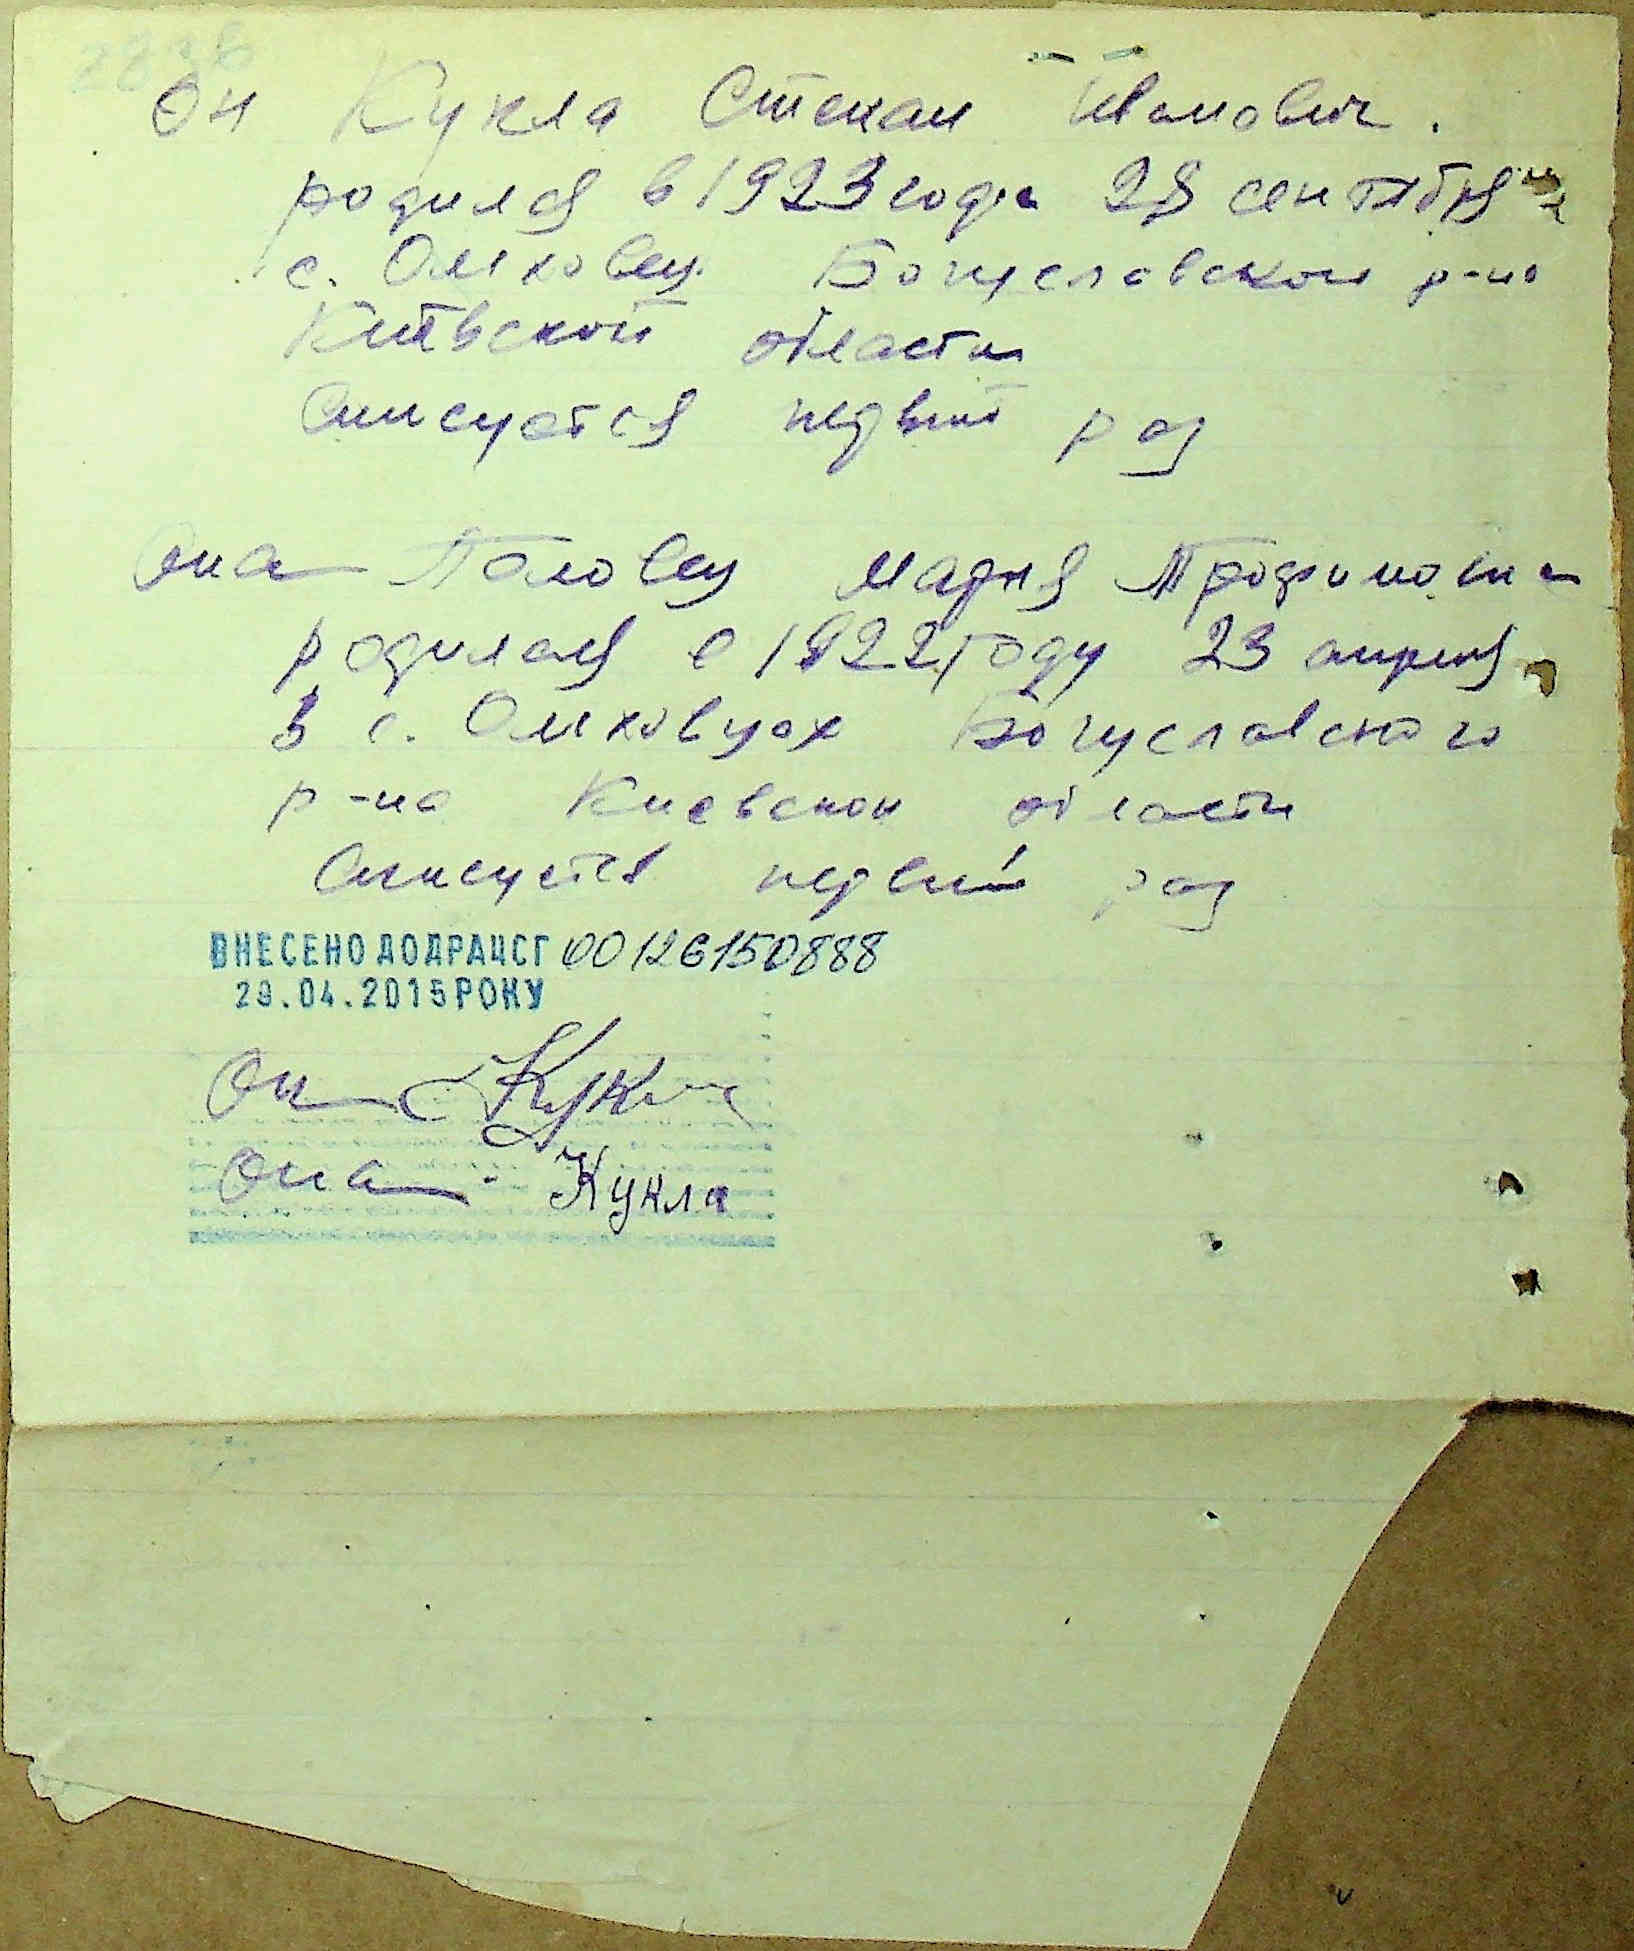 Он Кукла Степан Иванович.
родился в 1923 года 28 сентября
с. Ольховец Богуславского р-на
Киевской области
Списуется первый раз
Она Половец Мария Трофимовна
родилась в 1922 году 23 апреля
в с. Ольховцах Богуславского
р-на Киевской области
Списуется первый раз
ВНЕСЕНО ДО ДРАЦСГ 00126150888
29.04.2015 РОКУ
Он Кукла
Она - Кукла